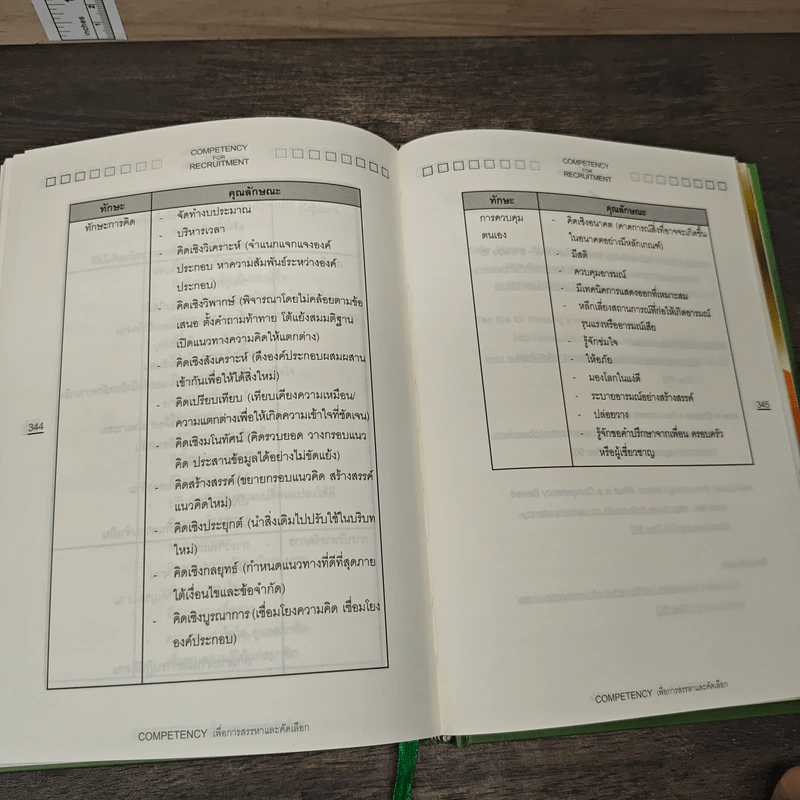 inches
1
2
COMPETENCY
FOR
RECRUITMENT
ทักษะ
คุณลักษณะ
ทักษะการคิด
- จัดทำงบประมาณ
- บริหารเวลา
- คิดเชิงวิเคราะห์ (จำแนกแจกแจงองค์
ประกอบ หาความสัมพันธ์ระหว่างองค์
ประกอบ)
- คิดเชิงวิพากษ์ (พิจารณาโดยไม่คล้อยตามข้อ
เสนอ ตั้งคำถามท้าทาย โต้แย้งสมมติฐาน
เปิดแนวทางความคิดให้แตกต่าง)
- คิดเชิงสังเคราะห์ (ดึงองค์ประกอบผสมผสาน
เข้ากันเพื่อให้ได้สิ่งใหม่)
- คิดเปรียบเทียบ (เทียบเคียงความเหมือน/
ความแตกต่างเพื่อให้เกิดความเข้าใจที่ชัดเจน)
- คิดเชิงมโนทัศน์ (คิดรวบยอด วางกรอบแนว
คิด ประสานข้อมูลได้อย่างไม่ขัดแย้ง)
- คิดสร้างสรรค์ (ขยายกรอบแนวคิด สร้างสรรค์
แนวคิดใหม่)
- คิดเชิงประยุกต์ (นำสิ่งเดิมไปปรับใช้ในบริบท
ใหม่)
- คิดเชิงกลยุทธ์ (กำหนดแนวทางที่ดีที่สุดภาย
ใต้เงื่อนไขและข้อจำกัด)
- คิดเชิงบูรณาการ (เชื่อมโยงความคิด เชื่อมโยง
องค์ประกอบ)
344
COMPETENCY เพื่อการสรรหาและคัดเลือก
COMPETENCY
FOR
RECRUITMENT
ทักษะ
คุณลักษณะ
การควบคุม
ตนเอง
- คิดเชิงอนาคต (คาดการณ์สิ่งที่อาจจะเกิดขึ้น
ในอนาคตอย่างมีหลักเกณฑ์)
- มีสติ
- ควบคุมอารมณ์
- มีเทคนิคการแสดงออกที่เหมาะสม
- หลีกเลี่ยงสถานการณ์ที่ก่อให้เกิดอารมณ์
รุนแรงหรืออารมณ์เสีย
- รู้จักข่มใจ
- ให้อภัย
- มองโลกในแง่ดี
- ระบายอารมณ์อย่างสร้างสรรค์
- ปล่อยวาง
- รู้จักขอคำปรึกษาจากเพื่อน ครอบครัว
หรือผู้เชี่ยวชาญ
345
COMPETENCY เพื่อการสรรหาและคัดเลือก